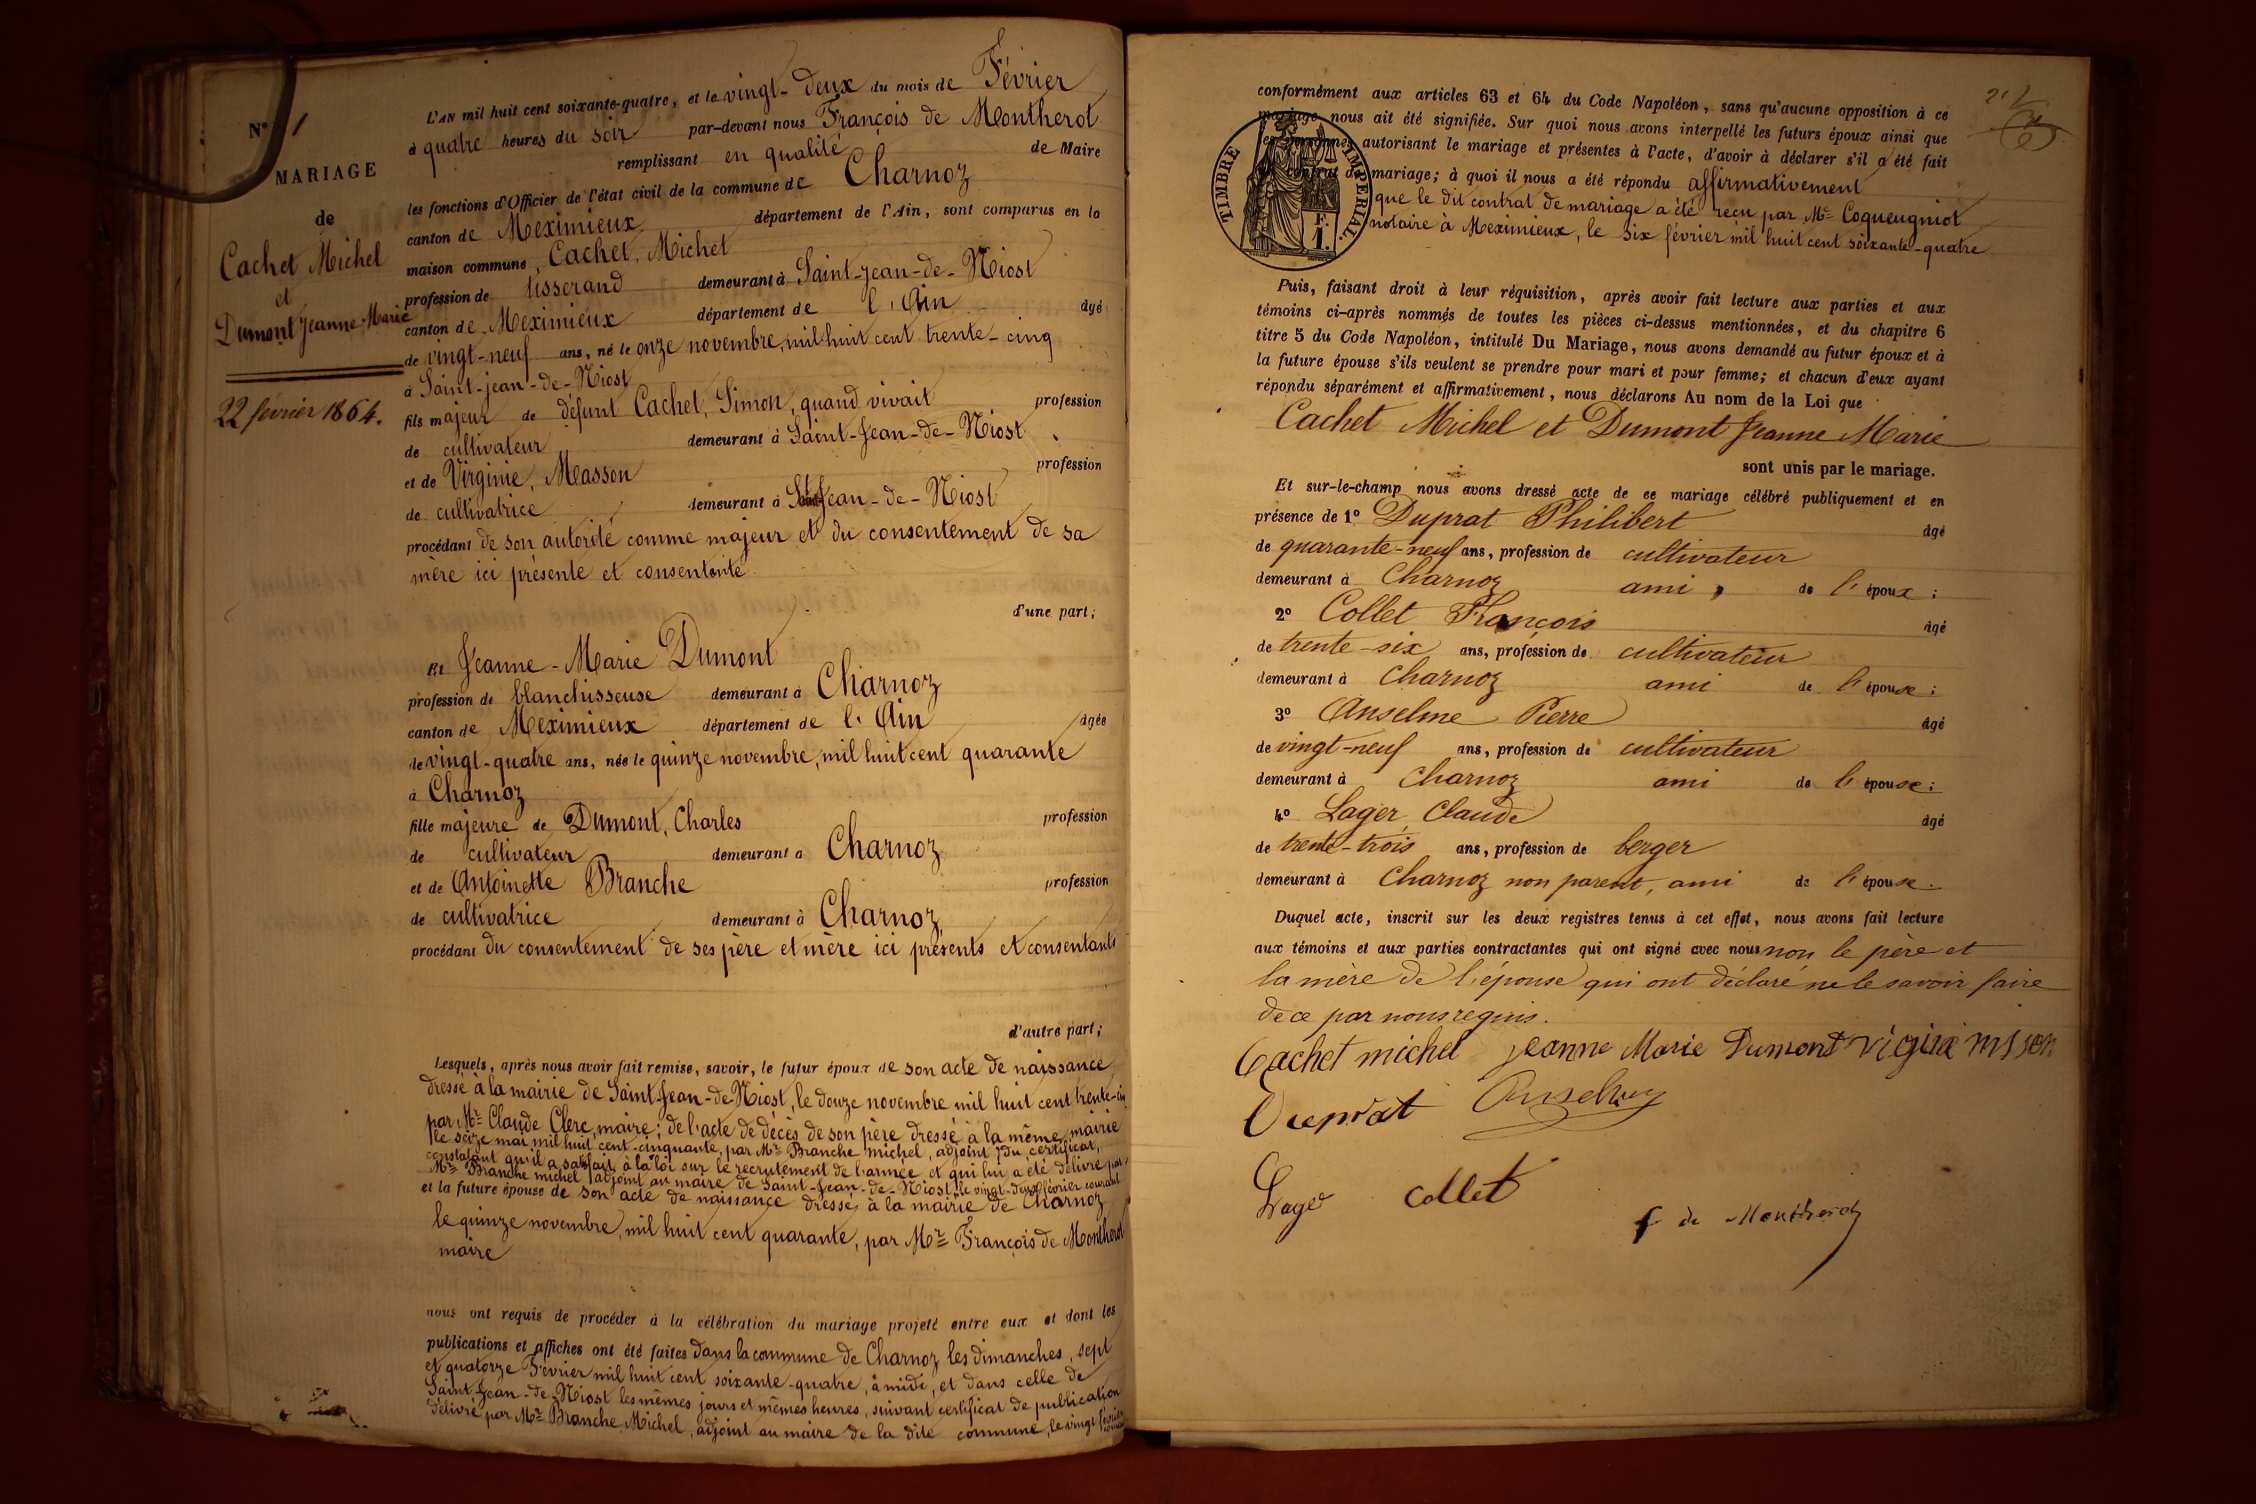 N° 1
MARIAGE
de
Cachet Michel
et
Dumont Jeanne-Marie
22 février 1864.
L'AN mil huit cent soixante-quatre, et le vingt-deux du mois de Février
à quatre heures du soir par-devant nous François de Montherot
remplissant en qualité de Maire
les fonctions d'Officier de l'état civil de la commune de Charnoz
canton de Meximieux département de l'Ain, sont comparus en la
maison commune, Cachet, Michel
profession de tisserand demeurant à Saint-Jean-de-Niost
canton de Meximieux département de l'Ain âgé
de vingt-neuf ans, né le onze novembre, mil huit cent trente-cinq
à Saint-jean-de-Niost
fils majeur de défunt Cachet, Simon, quand vivait profession
de cultivateur demeurant à Saint-Jean-de-Niost
et de Virginie, Masson profession
de cultivatrice demeurant à St Jean-de-Niost
procédant de son autorité comme majeur et du consentement de sa
mère ici présente et consentante
d'une part;
Et Jeanne-Marie Dumont
profession de blanchisseuse demeurant à Charnoz
canton de Meximieux département de l'Ain âgée
de vingt-quatre ans, née le quinze novembre, mil huit cent quarante
à Charnoz
fille majeure de Dumont, Charles profession
de cultivateur demeurant à Charnoz
et de Antoinette Branche profession
de cultivatrice demeurant à Charnoz,
procédant du consentement de ses père et mère ici présents et consentants
d'autre part;
Lesquels, après nous avoir fait remise, savoir, le futur époux de son acte de naissance
dressé à la mairie de Saint-Jean-de-Niost, le douze novembre mil huit cent trente-cinq
par Mr Claude Clerc, maire; de l'acte de décès de son père dressé à la même mairie
le seize mai mil huit cent-cinquante, par Mr Branche michel, adjoint; du certificat,
constatant qu'il a satisfait à la loi sur le recrutement de l'armée et qui lui a été délivré par
Mr Branche michel adjoint au maire de Saint-Jean-de-Niost, le vingt-deux février courant
et la future épouse de son acte de naissance dressé à la mairie de Charnoz
le quinze novembre, mil huit cent quarante, par Mr François de Montherot
maire
nous ont requis de procéder à la célébration du mariage projeté entre eux et dont les
publications et affiches ont été faites dans la commune de Charnoz les dimanches, sept
et quatorze Février mil huit cent soixante-quatre, à midi, et dans celle de
Saint-Jean-de-Niost les mêmes jours et mêmes heures, suivant certificat de publication
délivré par Mr Branche Michel, adjoint au maire de la dite commune, le vingt février
conformément aux articles 63 et 64 du Code Napoléon, sans qu'aucune opposition à ce
mariage nous ait été signifiée. Sur quoi nous avons interpellé les futurs époux ainsi que
les personnes autorisant le mariage et présentes à l'acte, d'avoir à déclarer s'il a été fait
contrat de mariage; à quoi il nous a été répondu affirmativement
que le dit contrat de mariage a été reçu par Me Coqueugniot
notaire à Meximieux, le six février mil huit cent soixante-quatre
TIMBRE IMPERIAL.
F.
1.
Puis, faisant droit à leur réquisition, après avoir fait lecture aux parties et aux
témoins ci-après nommés de toutes les pièces ci-dessus mentionnées, et du chapitre 6
titre 5 du Code Napoléon, intitulé Du Mariage, nous avons demandé au futur époux et à
la future épouse s'ils veulent se prendre pour mari et pour femme; et chacun d'eux ayant
répondu séparément et affirmativement, nous déclarons Au nom de la Loi que
Cachet Michel et Dumont Jeanne Marie
sont unis par le mariage.
Et sur-le-champ nous avons dressé acte de ce mariage célébré publiquement et en
présence de 1° Duprat Philibert âgé
de quarante-neuf ans, profession de cultivateur
demeurant à Charnoz ami, de l'époux;
2° Collet François âgé
de trente-six ans, profession de cultivateur
demeurant à Charnoz ami de l'épouse;
3° Anselme Pierre âgé
de vingt-neuf ans, profession de cultivateur
demeurant à Charnoz ami de l'épouse;
4° Lager, Claude âgé
de trente-trois ans, profession de berger
demeurant à Charnoz non parent, ami de l'épouse.
Duquel acte, inscrit sur les deux registres tenus à cet effet, nous avons fait lecture
aux témoins et aux parties contractantes qui ont signé avec nous non le père et
la mère de l'épouse qui ont déclaré ne le savoir faire
de ce par nous requis.
Cachet michel jeanne Marie Dumont
Duprat
Lager Collet
f de Montherot